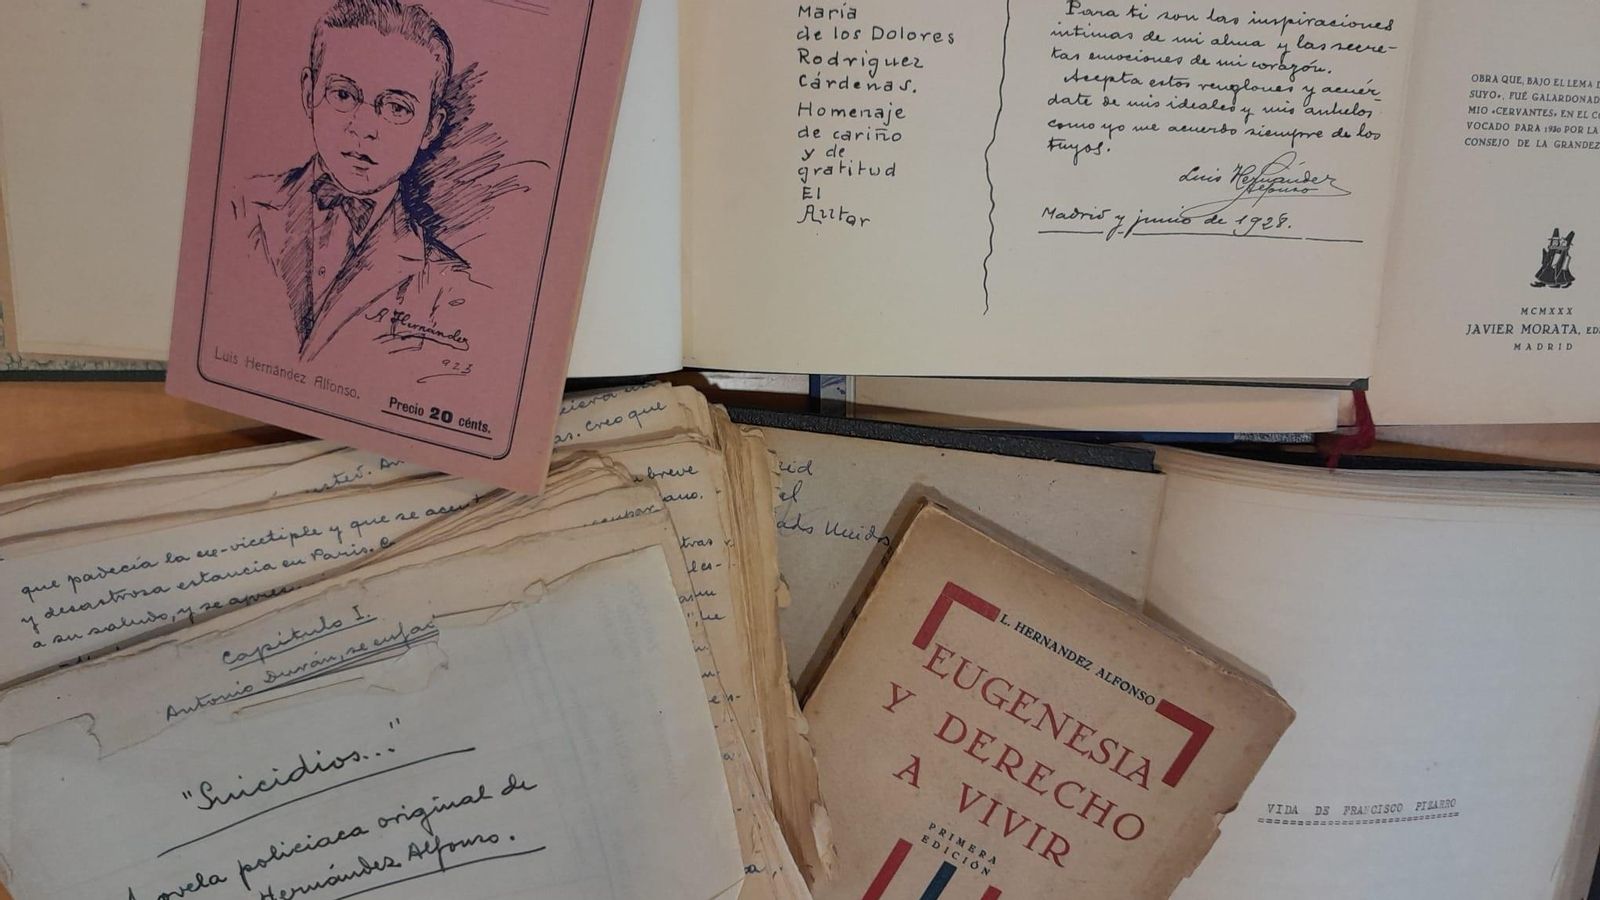 A Hernández
923
Luis Hernández Alfonso.
Precio 20 cénts.
María
de los Dolores
Rodriguez
Cárdenas.
Homenaje
de cariño
y de
gratitud
El
Autor
Para ti son las inspiraciones
íntimas de mi alma y las secre-
tas emociones de mi corazón.
Acepta estos renglones y acuér-
date de mis ideales y mis anhelos
como yo me acuerdo siempre de los
tuyos.
Luis Hernández
Alfonso
Madrid y junio de 1928.
OBRA QUE, BAJO EL LEMA
SUYO», FUÉ GALARDONAD
MIO «CERVANTES» EN EL CO
VOCADO PARA 1930 POR LA
CONSEJO DE LA GRANDEZ
MCMXXX
JAVIER MORATA, ED
MADRID
as. Creo que
breve
que padecía la ex-vicetiple y que se
y desastrosa estancia en París.
a su saludo, y se
Capítulo I.
Antonio Durán, se
"Suicidios..."
Novela policiaca original de
Hernández Alfonso.
Unidos
L. HERNANDEZ ALFONSO
EUGENESIA
Y DERECHO
A VIVIR
PRIMERA
EDICIÓN
VIDA DE FRANCISCO PIZARRO